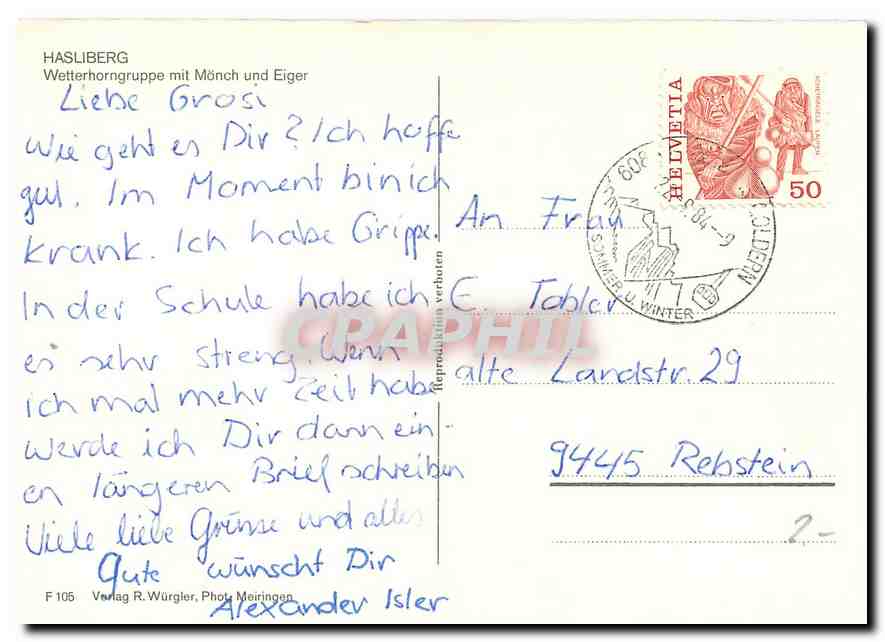 HASLIBERG
Wetterhorngruppe mit Mönch und Eiger
Liebe Grosi
Wie geht es Dir? Ich hoffe
gut. Im Moment bin ich
krank. Ich habe Grippe.
In der Schule habe ich
es sehr streng. Wenn
ich mal mehr Zeit habe
werde ich Dir dann ein-
en längeren Brief schreiben
Viele liebe Grüsse und alles
Gute wünscht Dir
Alexander Isler
F 105 Verlag R. Würgler, Phot. Meiringen
Reproduktion verboten
CPAPHIL
HELVETIA
50
608
84-9
GOLDERN
SOMMER U. WINTER
An Frau
E. Tobler
alte Landstr. 29
9445 Rebstein
2.-